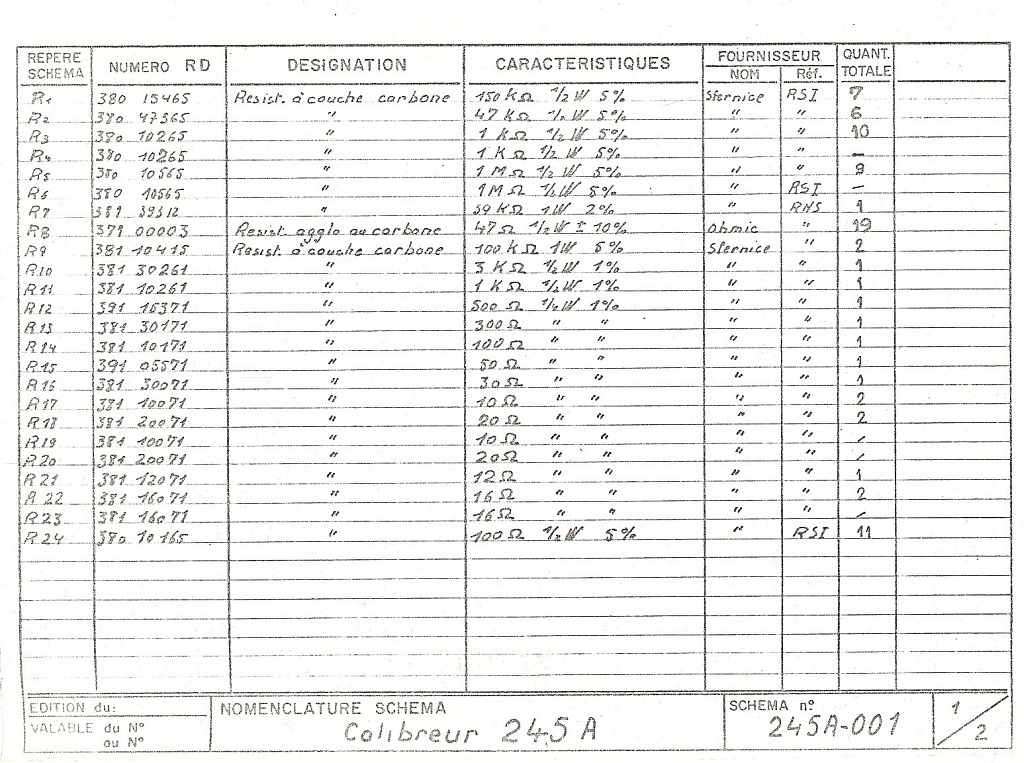 REPERE SCHEMA NUMERO RD DESIGNATION CARACTERISTIQUES FOURNISSEUR NOM Réf. QUANT. TOTALE
R1 380 15465 Resist. à couche carbone 150 KΩ 1/2 W 5% Sfernice RSI 7
R2 380 47365 " 47 KΩ 1/2 W 5% " " 6
R3 380 10265 " 1 KΩ 1/2 W 5% " " 10
R4 380 10265 " 1 KΩ 1/2 W 5% " " —
R5 380 10565 " 1 MΩ 1/2 W 5% " " 8
R6 380 10565 " 1 MΩ 1/2 W 5% " RSI —
R7 381 39312 " 39 KΩ 1W 2% " RHS 1
R8 371 00003 Resist. agglo au carbone 47Ω 1/2W ± 10% Ohmic " 19
R9 381 10415 Resist. à couche carbone 100 KΩ 1W 5% Sfernice " 2
R10 381 30261 " 3 KΩ 1/2W 1% " " 1
R11 381 10261 " 1 KΩ 1/2W 1% " " 1
R12 391 15371 " 500 Ω 1/2W 1% " " 1
R13 381 30171 " 300Ω " " " " 1
R14 381 10171 " 100Ω " " " " 1
R15 391 05571 " 50 Ω " " " " 1
R16 381 30071 " 30Ω " " " " 1
R17 381 10071 " 10Ω " " " " 2
R18 381 20071 " 20Ω " " " " 2
R19 381 10071 " 10Ω " " " " -
R20 381 20071 " 20Ω " " " " -
R21 381 12071 " 12Ω " " " " 1
R22 381 16071 " 16Ω " " " " 2
R23 381 16071 " 16Ω " " " " -
R24 380 10165 " 100Ω 1/2W 5% " RSI 11
EDITION du:
VALABLE du N°
au N°
NOMENCLATURE SCHEMA
Calibreur 245 A
SCHEMA n°
245A-001
1/2